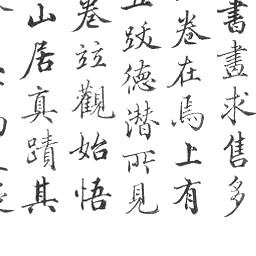 書畫求售多
卷在焉上有
跋德潜所見
卷竝觀始悟
山居真蹟其